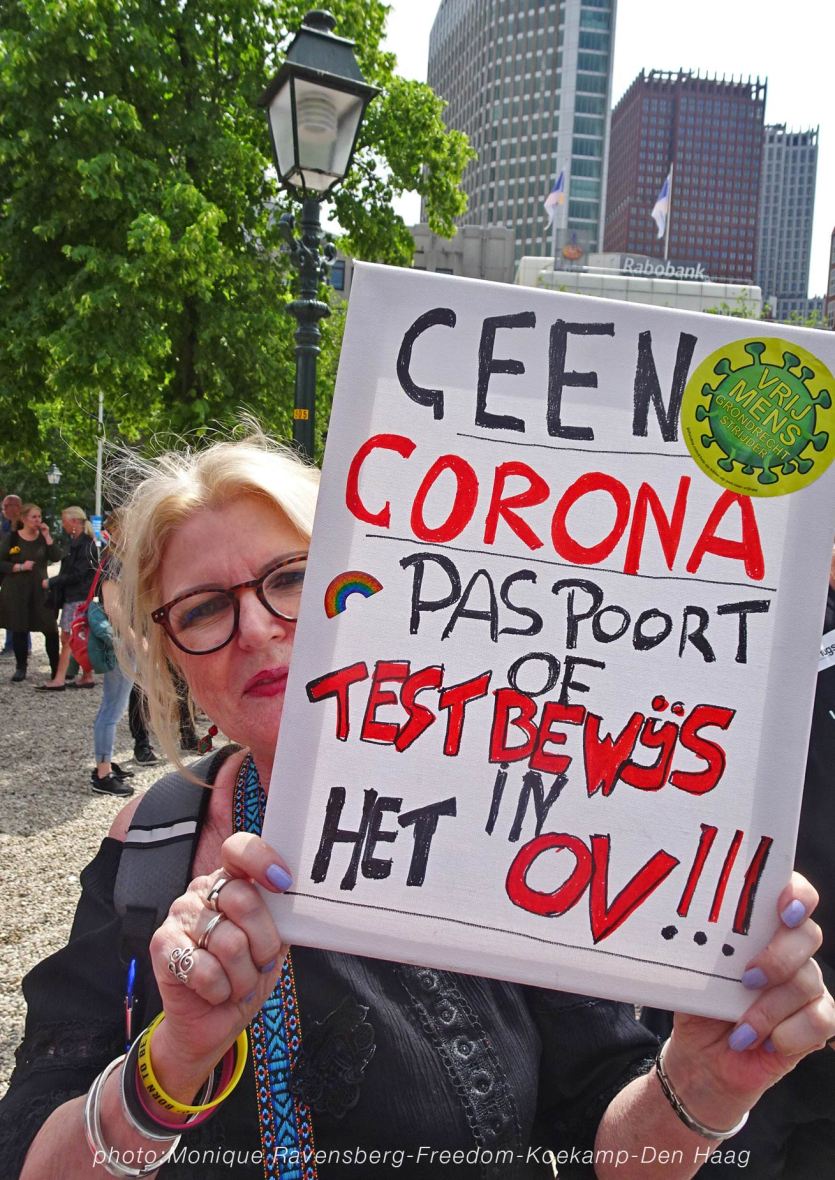 Rabobank
GEEN
VRIJ
MENS
GRONDRECHT
STRIJDER
CORONA
PASPOORT
OF
TESTBEWijS
IN
HET OV!!!
BORN TO BE
photo:Monique Ravensberg-Freedom-Koekamp-Den Haag